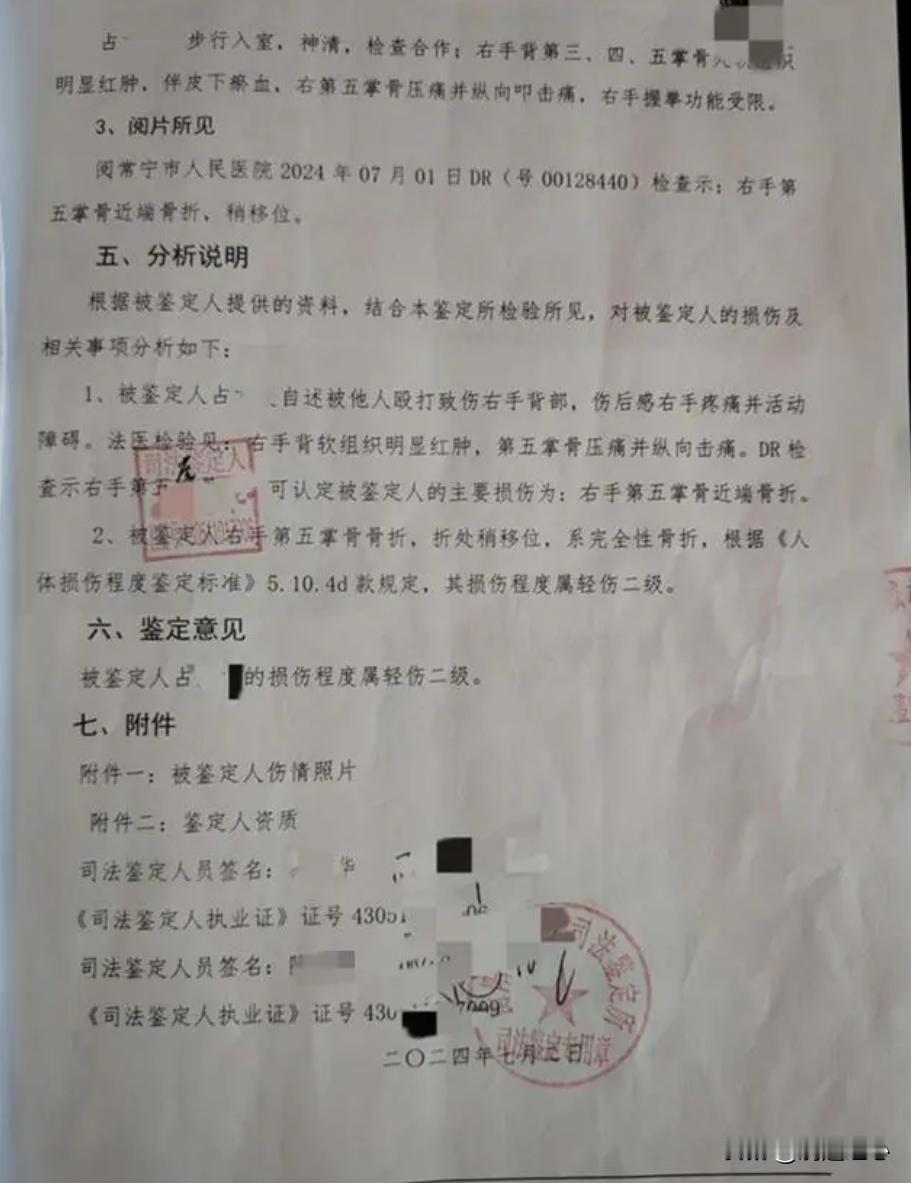 占 步行入室，神清，检查合作；右手背第三、四、五掌骨
明显红肿，伴皮下瘀血，右第五掌骨压痛并纵向叩击痛，右手握拳功能受限。
3、阅片所见
阅常宁市人民医院 2024 年 07 月 01 日 DR（号 00128440）检查示：右手第
五掌骨近端骨折，稍移位。
五、分析说明
根据被鉴定人提供的资料，结合本鉴定所检验所见，对被鉴定人的损伤及
相关事项分析如下：
1、被鉴定人占 自述被他人殴打致伤右手背部，伤后感右手疼痛并活动
障碍。法医检验见：右手背软组织明显红肿，第五掌骨压痛并纵向击痛。DR 检
查示右手第五 可认定被鉴定人的主要损伤为：右手第五掌骨近端骨折。
司法鉴定人
2、被鉴定人右手第五掌骨骨折，折处稍移位，系完全性骨折，根据《人
体损伤程度鉴定标准》5.10.4d 款规定，其损伤程度属轻伤二级。
六、鉴定意见
被鉴定人占 的损伤程度属轻伤二级。
七、附件
附件一：被鉴定人伤情照片
附件二：鉴定人资质
司法鉴定人员签名： 华
《司法鉴定人执业证》证号 4305
司法鉴定人员签名：
《司法鉴定人执业证》证号 430 7009
司法鉴定所
司法鉴定专用章
二〇二四年七月 日